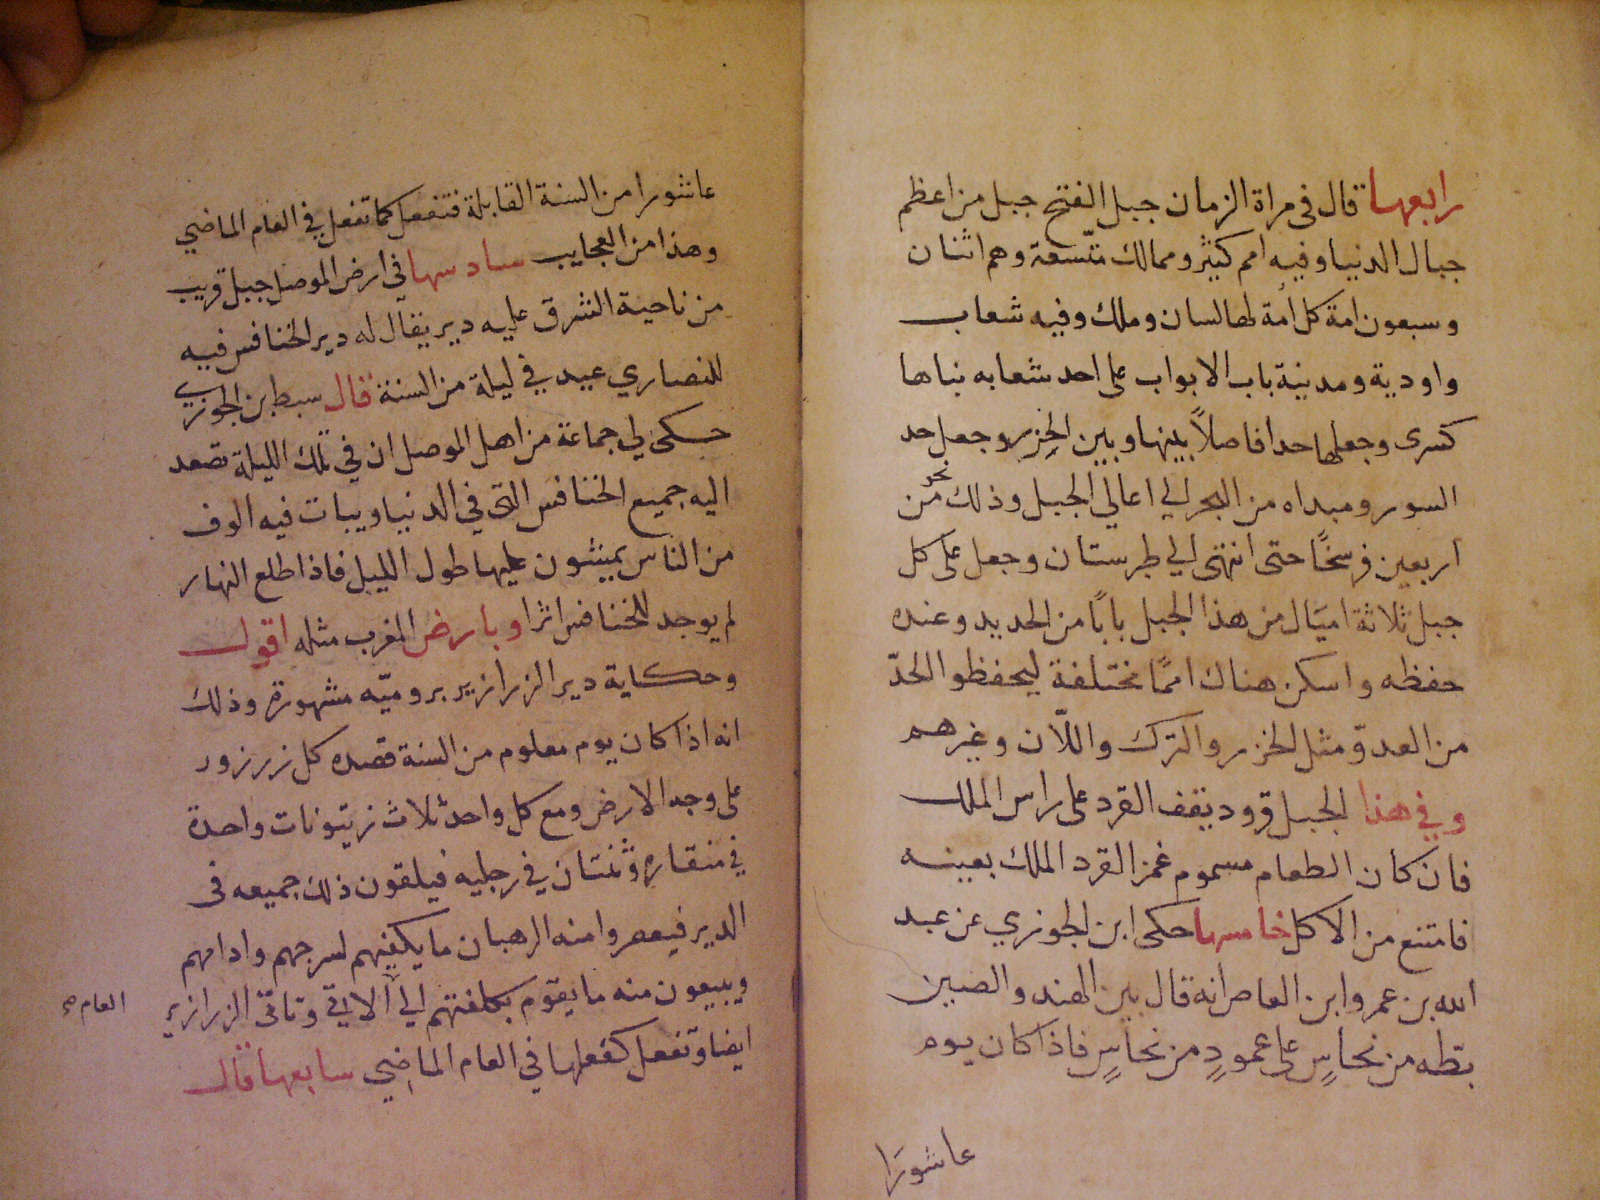 رابعها قال في مراة الزمان جبل الفتح جبل من اعظم
جبال الدنيا وفيه امم كثير وممالك متسعة وهم اثنان
وسبعون امة كل امة لها لسان وملك وفيه شعاب
واودية ومدينة باب الابواب على احد شعابه بناها
كسرى وجعلها حدا فاصلاً بينها وبين الخزر وجعل حد
السور ومبداه من البحر الي اعالي الجبل وذلك نحو من
اربعين فرسخًا حتى انتهى الي طبرستان وجعل على كل
جبل ثلاثة اميال من هذا الجبل بابًا من الحديد وعنده
حفظه واسكن هناك اممًا مختلفة ليحفظو الحدّ
من العدوّ مثل الخزر والترك واللّان وغيرهم
وفي هذا الجبل قرود يقف القرد على راس الملك
فان كان الطعام مسموم غمز القرد الملك بعينه
فامتنع من الاكل خامسها حكى ابن الجوزي عن عبد
الله بن عمرو ابن العاص انه قال بين الهند والصين
بطه من نحاسٍ على عمودٍ من نحاسٍ فاذا كان يوم
عاشورا
عاشورا من السنة القابلة فتفعل كما تفعل في العام الماضي
وهذا من العجايب سادسها في ارض الموصل جبل قريب
من ناحية الشرق عليه دير يقال له دير الخنافس فيه
للنصاري عيد في ليلة من السنة قال سبط ابن الجوزي
حكى لي جماعة من اهل الموصل ان في تلك الليلة تصعد
اليه جميع الخنافس التى في الدنيا ويبات فيه الوف
من الناس يمشون عليها طول الليل فاذا طلع النهار
لم يوجد للخنافس اثرا وبارض المغرب مثله اقول
وحكاية دير الزرازير بروميّه مشهورة وذلك
انه اذا كان يوم معلوم من السنة قصده كل زرزور
على وجه الارض ومع كل واحد ثلاث زيتونات واحدة
في منقاره وثنتان في رجليه فيلقون ذلك جميعه فى
الدير فيعصروا منه الرهبان ما يكفيهم لسرجهم وادامهم
ويبيعون منه ما يقوم بكلفتهم الي الاتي وتاتى الزرازير
العام صح
ايضا وتفعل كفعلها في العام الماضي سابعها قال